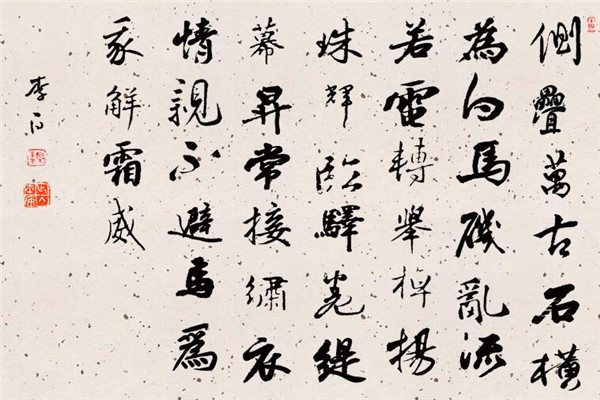 側疊萬古石橫
為白馬磯亂流
若電轉舉棹揚
珠輝臨驛卷緹
幕昇常接繡衣
情親不避馬為
我解霜威
李白